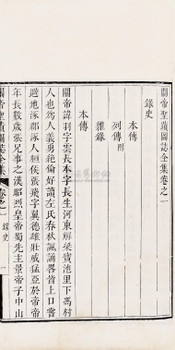 關帝聖蹟圖誌全集卷之一
錄史
本傳
列傳附
雜錄
本傳
關帝諱羽字雲長本字長生河東解梁寶池里下馮村
人也為人義勇絕倫好讀左氏春秋諷誦畧皆上口嘗
避地涿郡涿人桓侯張飛字翼德雄壯威猛亞於帝帝
年長數歲張兄事之漢昭烈皇帝蜀先主景帝子中山
關帝聖蹟圖誌全集
卷之一
錄史